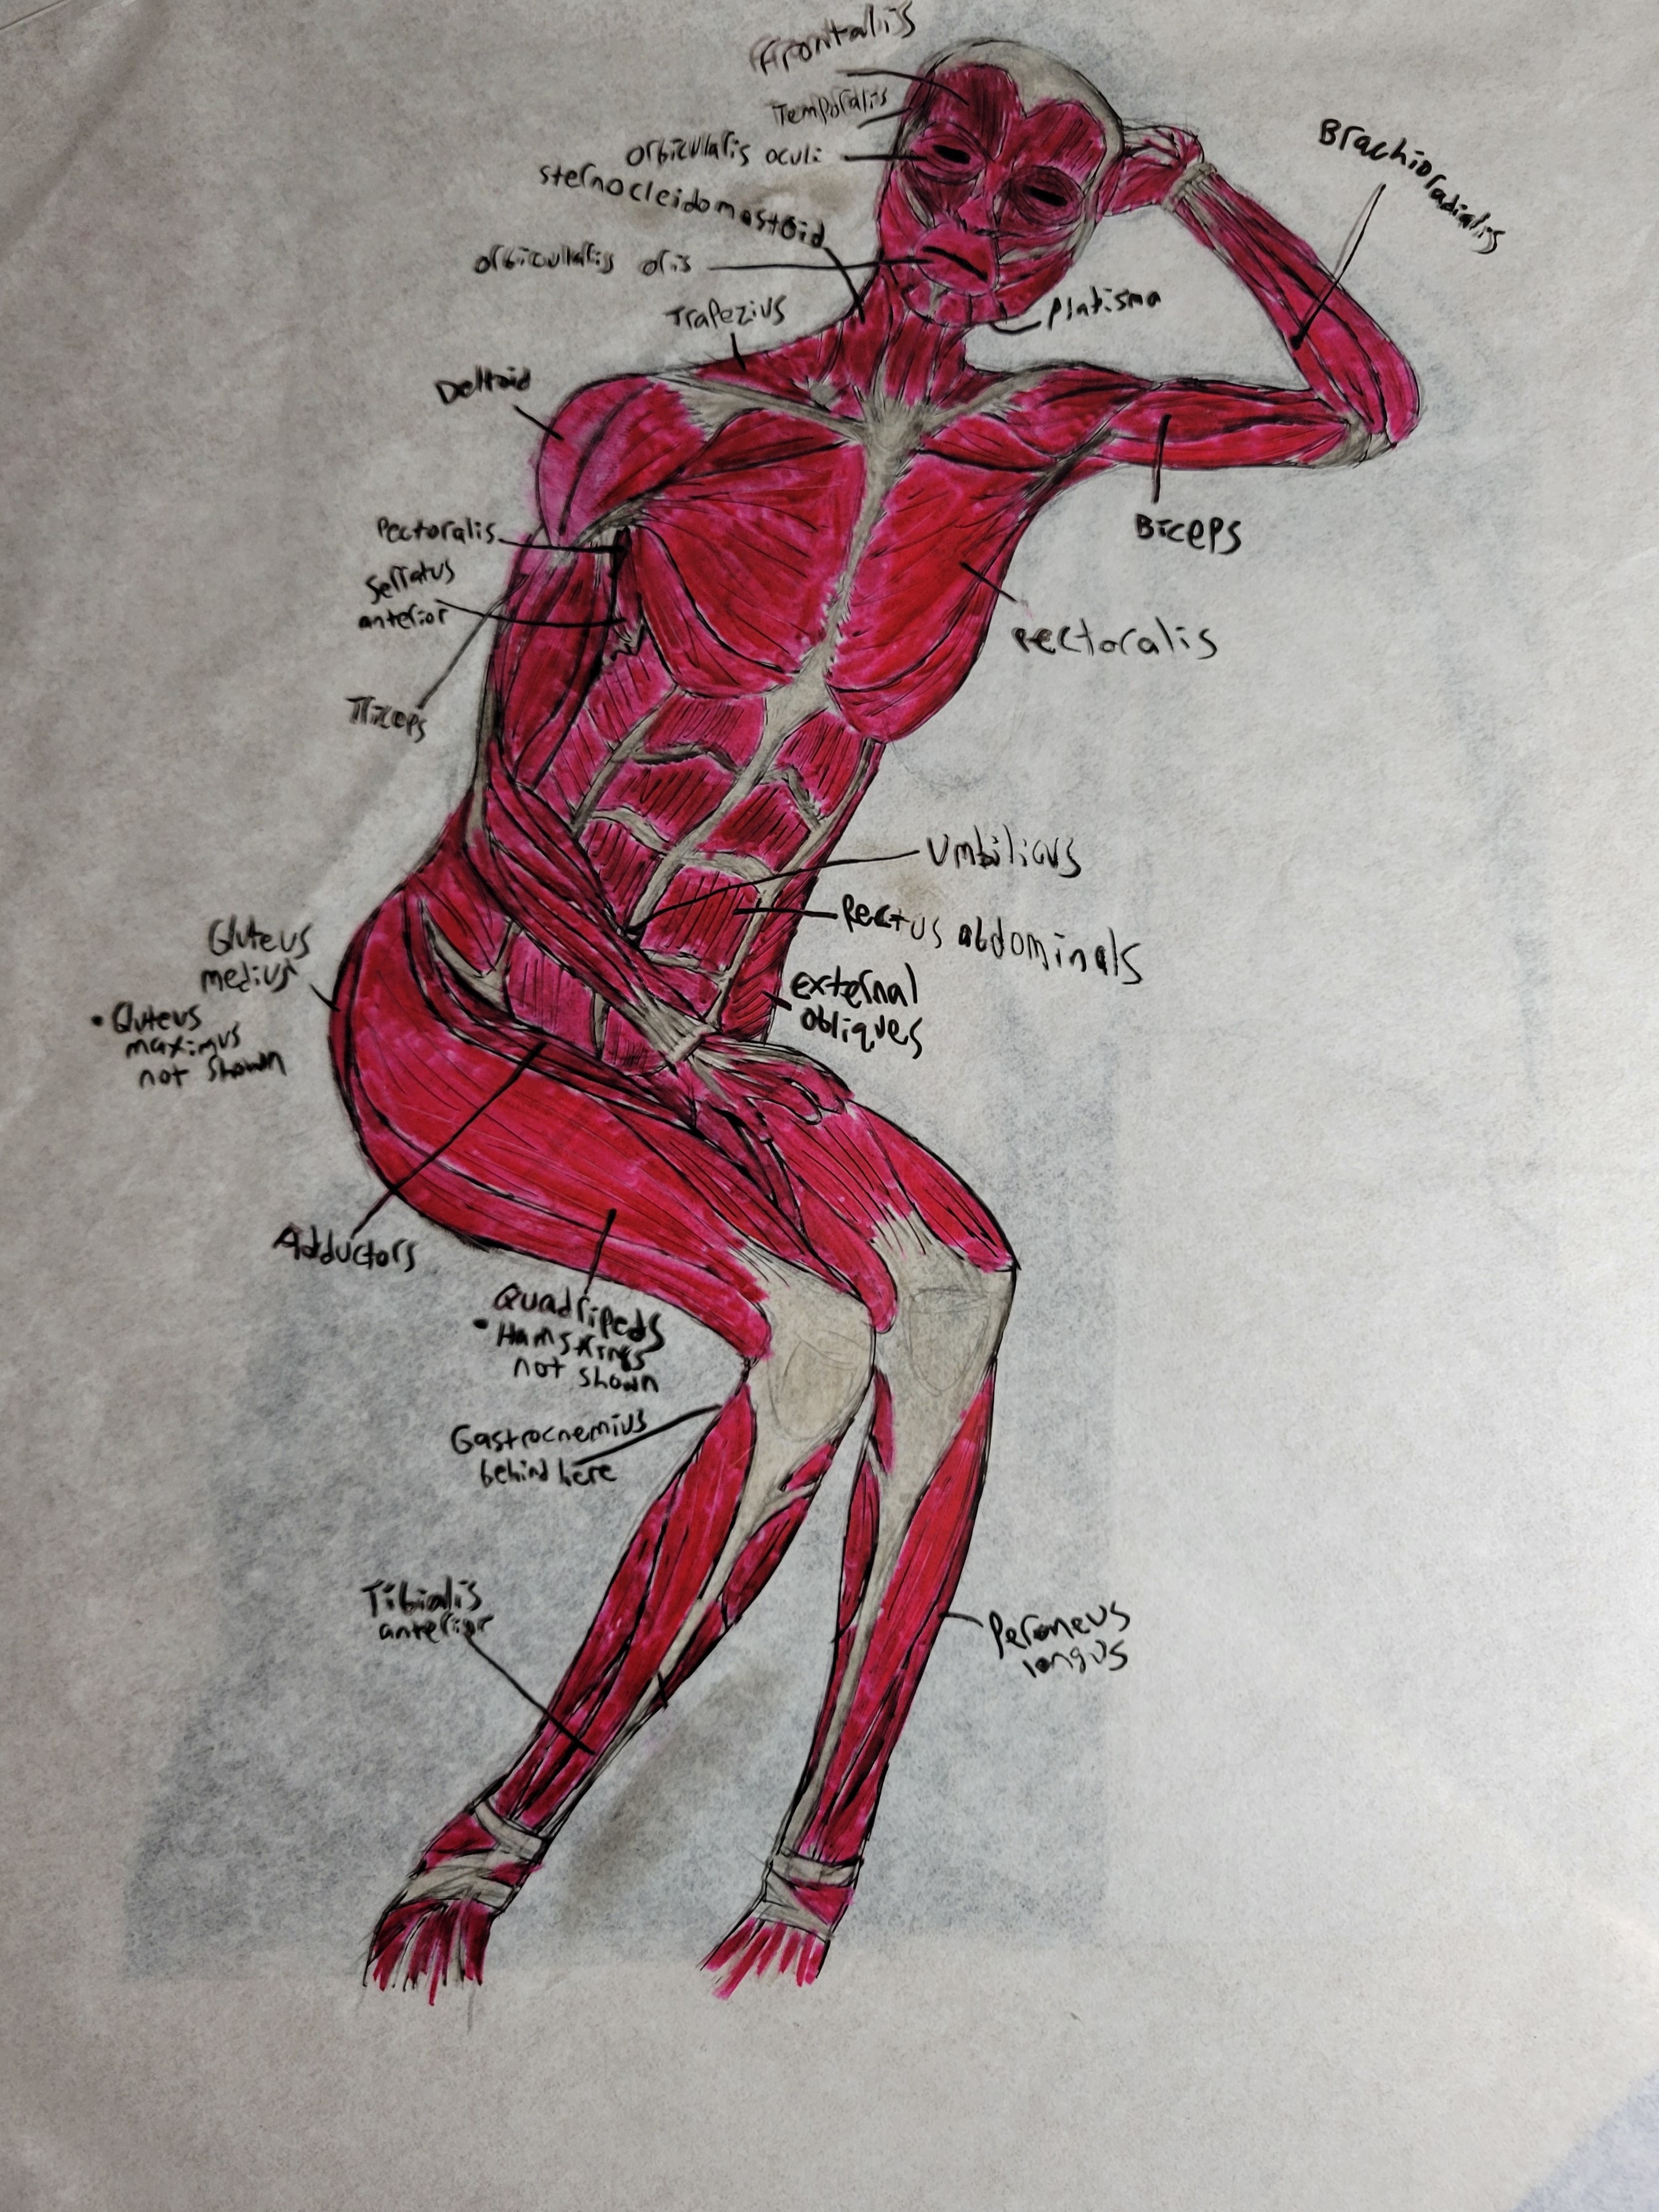 Frontalis
Temporalis
orbicularis oculi
sternocleidomastoid
orbicullaris oris
Trapezius
Brachioradialis
Platisma
Deltoid
Biceps
Pectoralis
Serratus
anterior
Pectoralis
Triceps
Umbilicus
Rectus abdominals
Gluteus
medius
• Gluteus
maximus
not shown
external
obliques
Adductors
Quadripeds
• Hamstrings
not shown
Gastrocnemius
behind here
Tibialis
anterior
Peroneus
longus